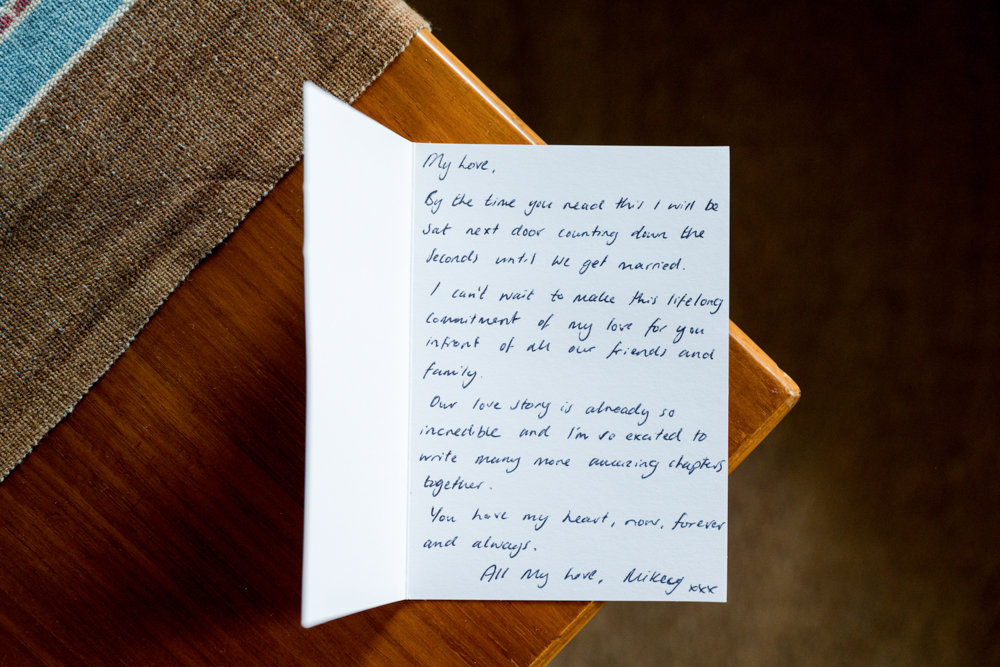 My Love,
By the time you read this I will be
sat next door counting down the
seconds until we get married.
I can't wait to make this lifelong
commitment of my love for you
infront of all our friends and
family.
Our love story is already so
incredible and I'm so excited to
write many more amazing chapters
together.
You have my heart, now, forever
and always.
All My Love, Mikey xxx